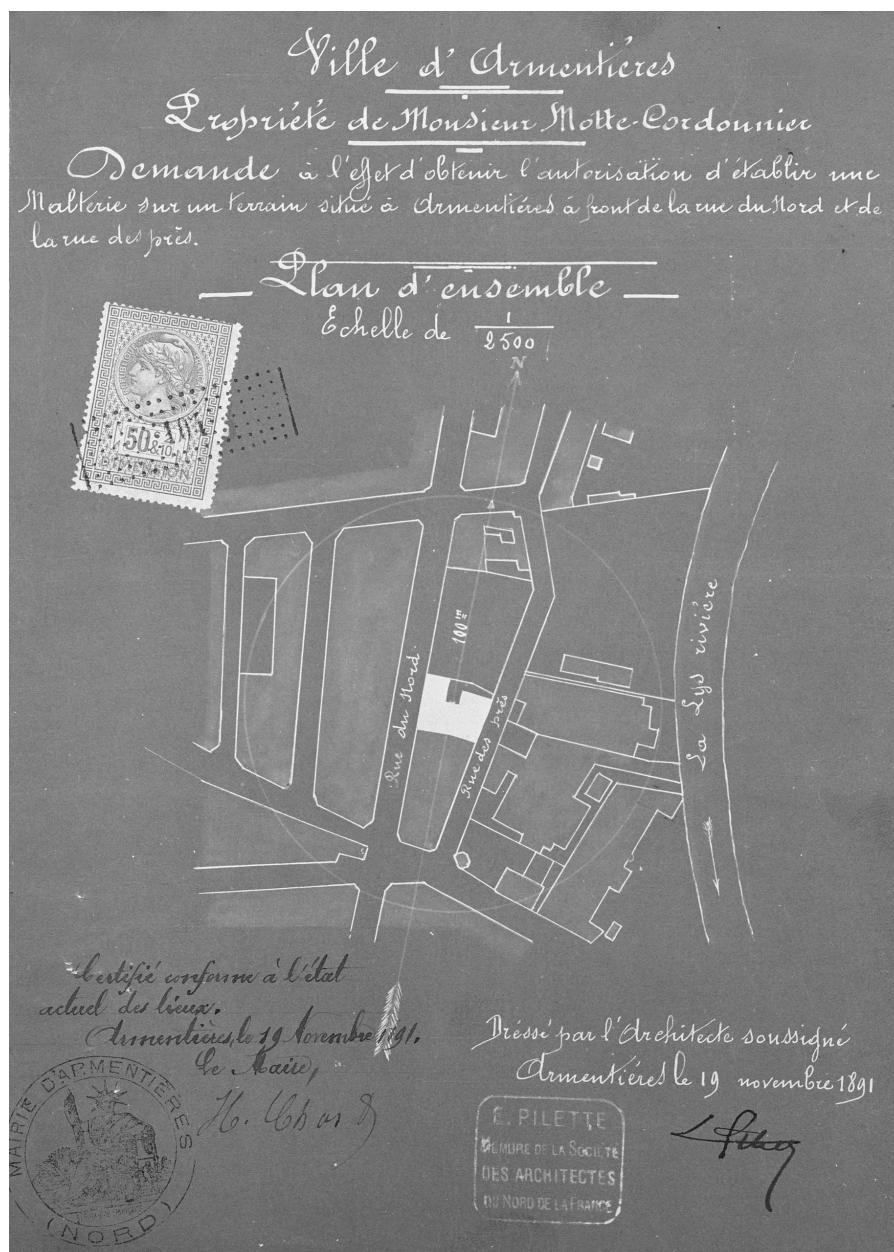 Ville d'Armentières
Propriété de Monsieur Motte-Cordonnier
Demande à l'effet d'obtenir l'autorisation d'établir une
Malterie sur un terrain situé à Armentières à front de la rue du Nord et de
la rue des près.
Plan d'ensemble
Echelle de 1/2500
N
50 & 10
DIMENSION
100m
Rue du Nord.
Rue des près
La Lys rivière
Certifié conforme à l'état
actuel des lieux.
Armentières, le 19 Novembre 1891.
Le Maire,
MAIRIE D'ARMENTIÈRES
(NORD)
Dréssé par l'Architecte soussigné
Armentiéres le 19 novembre 1891
E. PILETTE
MEMBRE DE LA SOCIÉTÉ
DES ARCHITECTES
DU NORD DE LA FRANCE